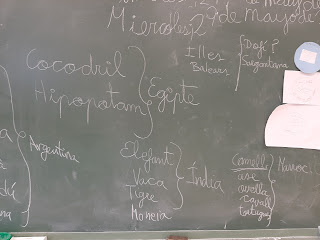 Miercoles, 29 de mayo de
Cocodril
Hipopotam
Egipte
Illes
Balears
Dofí?
Sargantana
Argentina
Elefant
Vaca
Tigre
Moneia
Índia
Camell
ase
ovella
cavall
Tortuga
Marroc